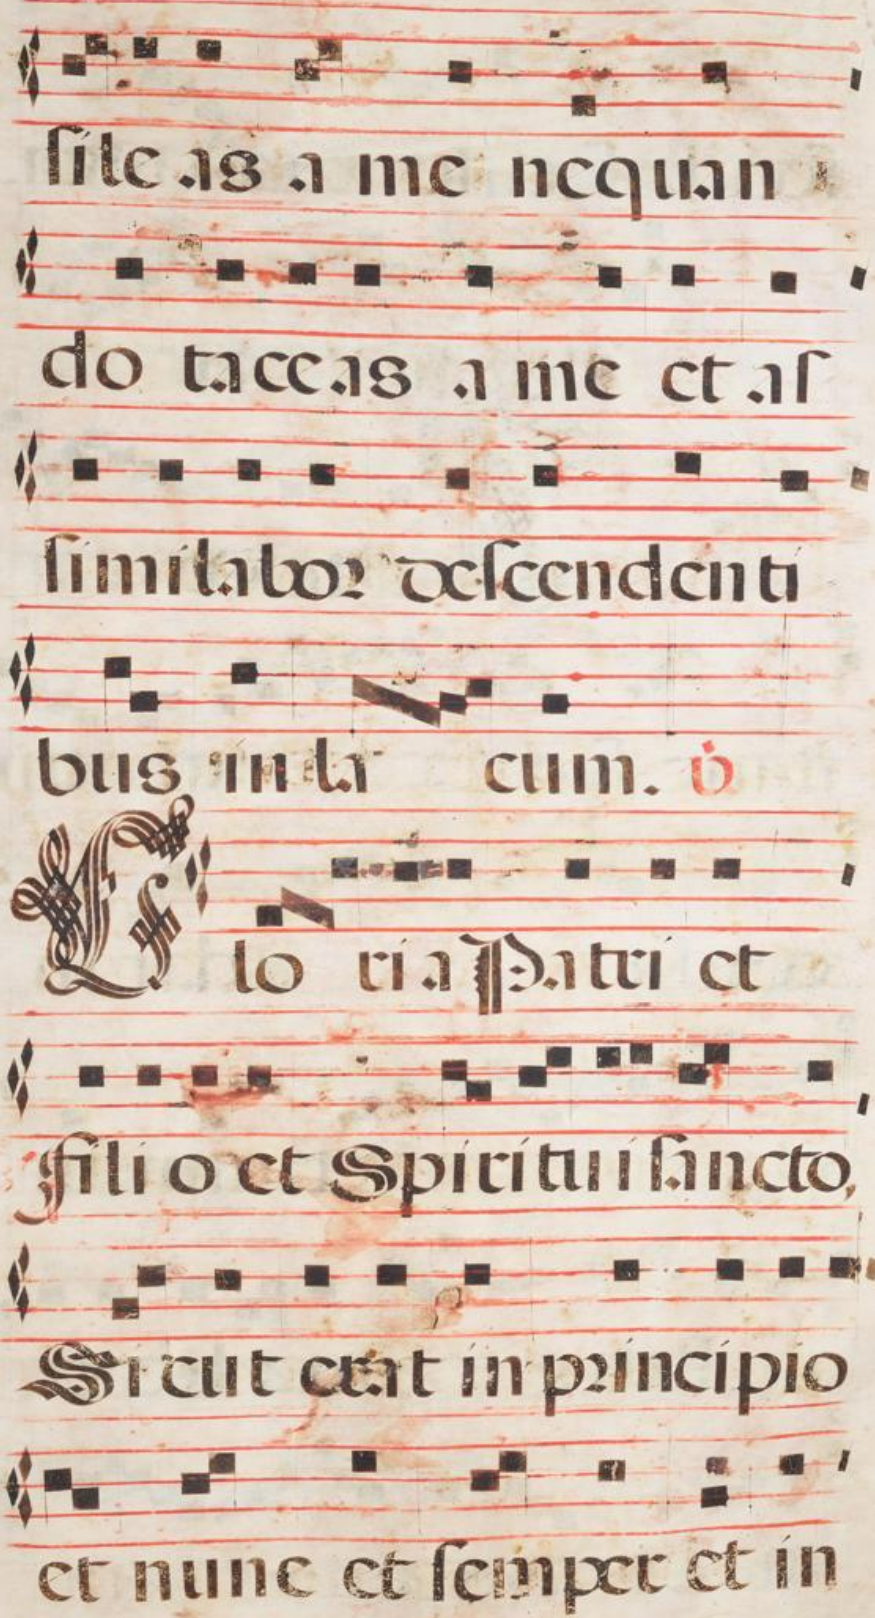 sile as a me nequan
do taceas a me et as
similabor descendenti
bus in la cum. ℣
Glo ria Patri et
filio et Spiritui sancto,
Sicut erat in principio
et nunc et semper et in